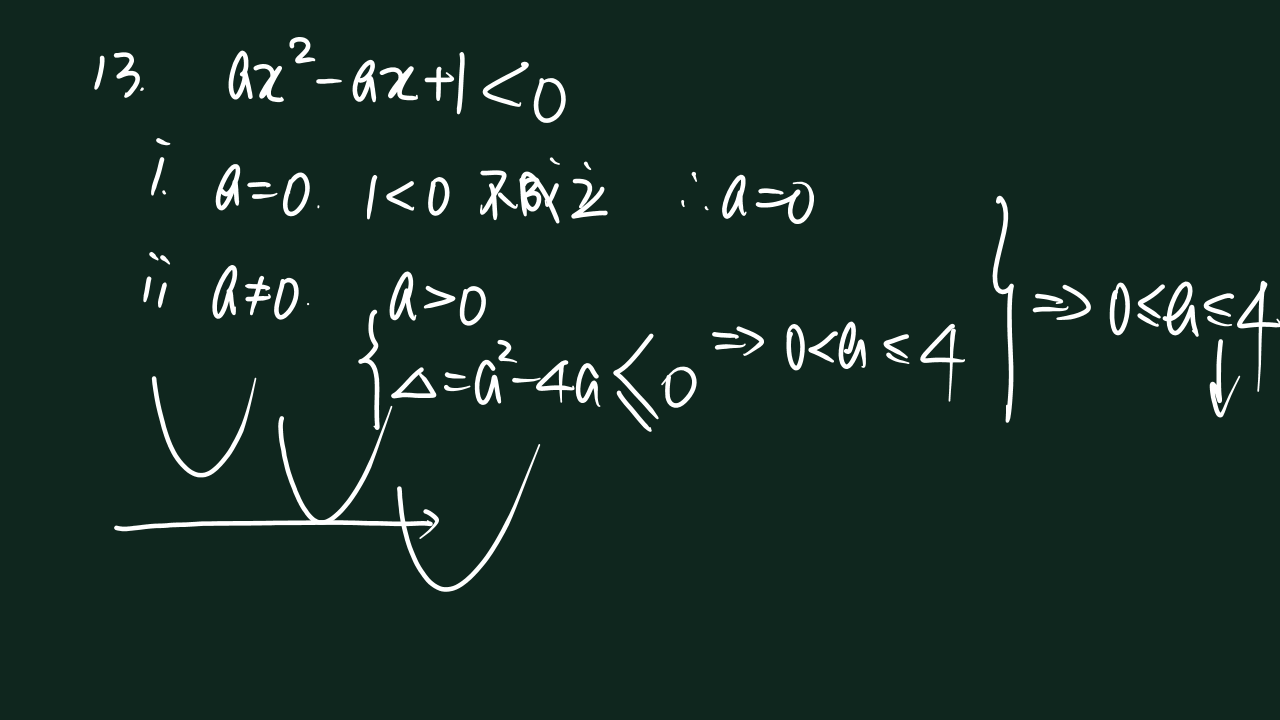 13. ax²-ax+1<0
i. a=0. 1<0 不成立 ∴a=0
ii a≠0. { a>0
Δ=a²-4a≤0 ⇒ 0<a≤4 } ⇒ 0≤a≤4